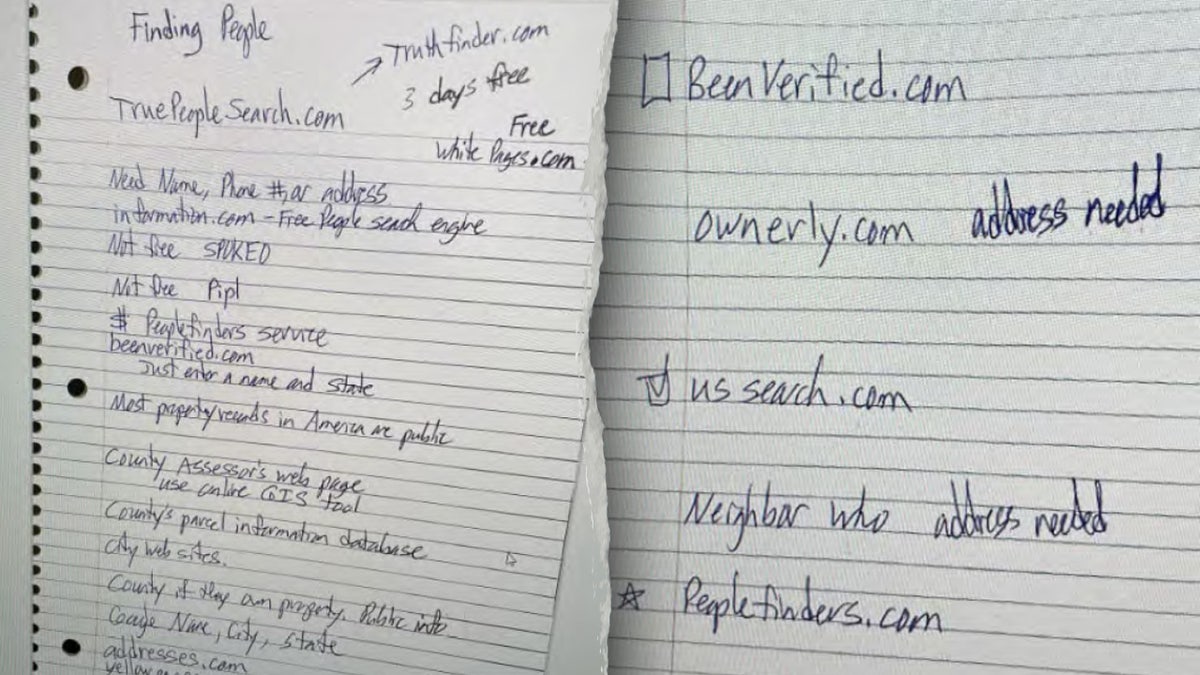 Finding People
Truthfinder.com
3 days free
TruePeopleSearch.com
Free
White Pages.com
Need Name, Phone #, or address
information.com - Free People seach engine
Not free SPOKED
Not free Pipl
$ Peoplefinders service
beenverified.com
Just enter a name and state
Most property records in America are public
County Assessor's web page
use online GIS tool
County's parcel information database
City web sites.
County if they own property. Public info
Google Name, City, state
addresses.com
BeenVerified.com
ownerly.com address needed
us search.com
Neighbor who address needed
Peoplefinders.com